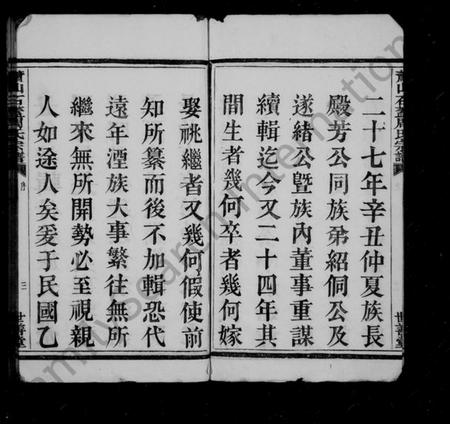 二十七年辛丑仲夏族長
殿芳公同族弟紹侗公及
遂緒公曁族內董事重謀
續輯迄今又二十四年其
間生者幾何卒者幾何嫁
娶祧繼者又幾何假使前
知所纂而後不加輯恐代
遠年湮族大事繁往無所
繼來無所開勢必至視親
人如途人矣爰于民國乙
蕭山
氏宗譜
三
世善堂
世善堂